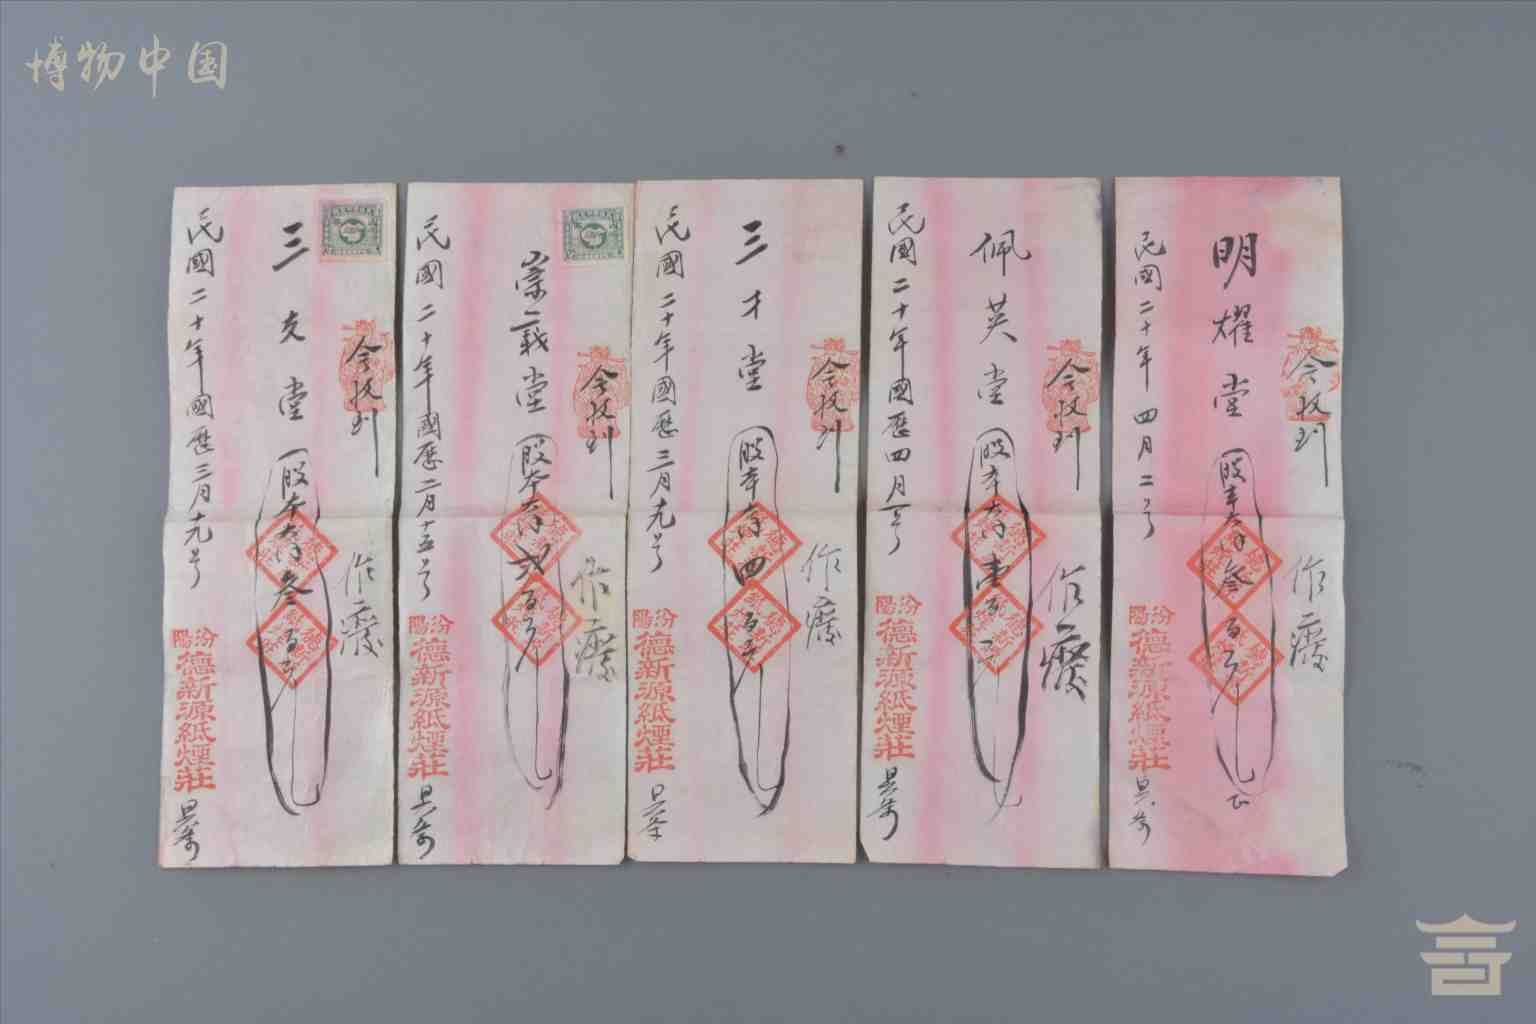 博物中国
今收到
明耀堂
股本大洋叁百元
作廢
民國二十年四月二号
汾陽
德新源紙煙莊
具條
今收到
佩英堂
股本大洋壹百元
作廢
民國二十年國歷四月一号
汾陽
德新源紙煙莊
具條
今收到
三才堂
股本大洋四百元
作廢
民國二十年國歷三月九号
汾陽
德新源紙煙莊
具條
今收到
崇義堂
股本大洋弍百元
作廢
民國二十年國歷二月十五号
汾陽
德新源紙煙莊
具條
今收到
三友堂
股本大洋叁百元
作廢
民國二十年國歷三月十九号
汾陽
德新源紙煙莊
具條